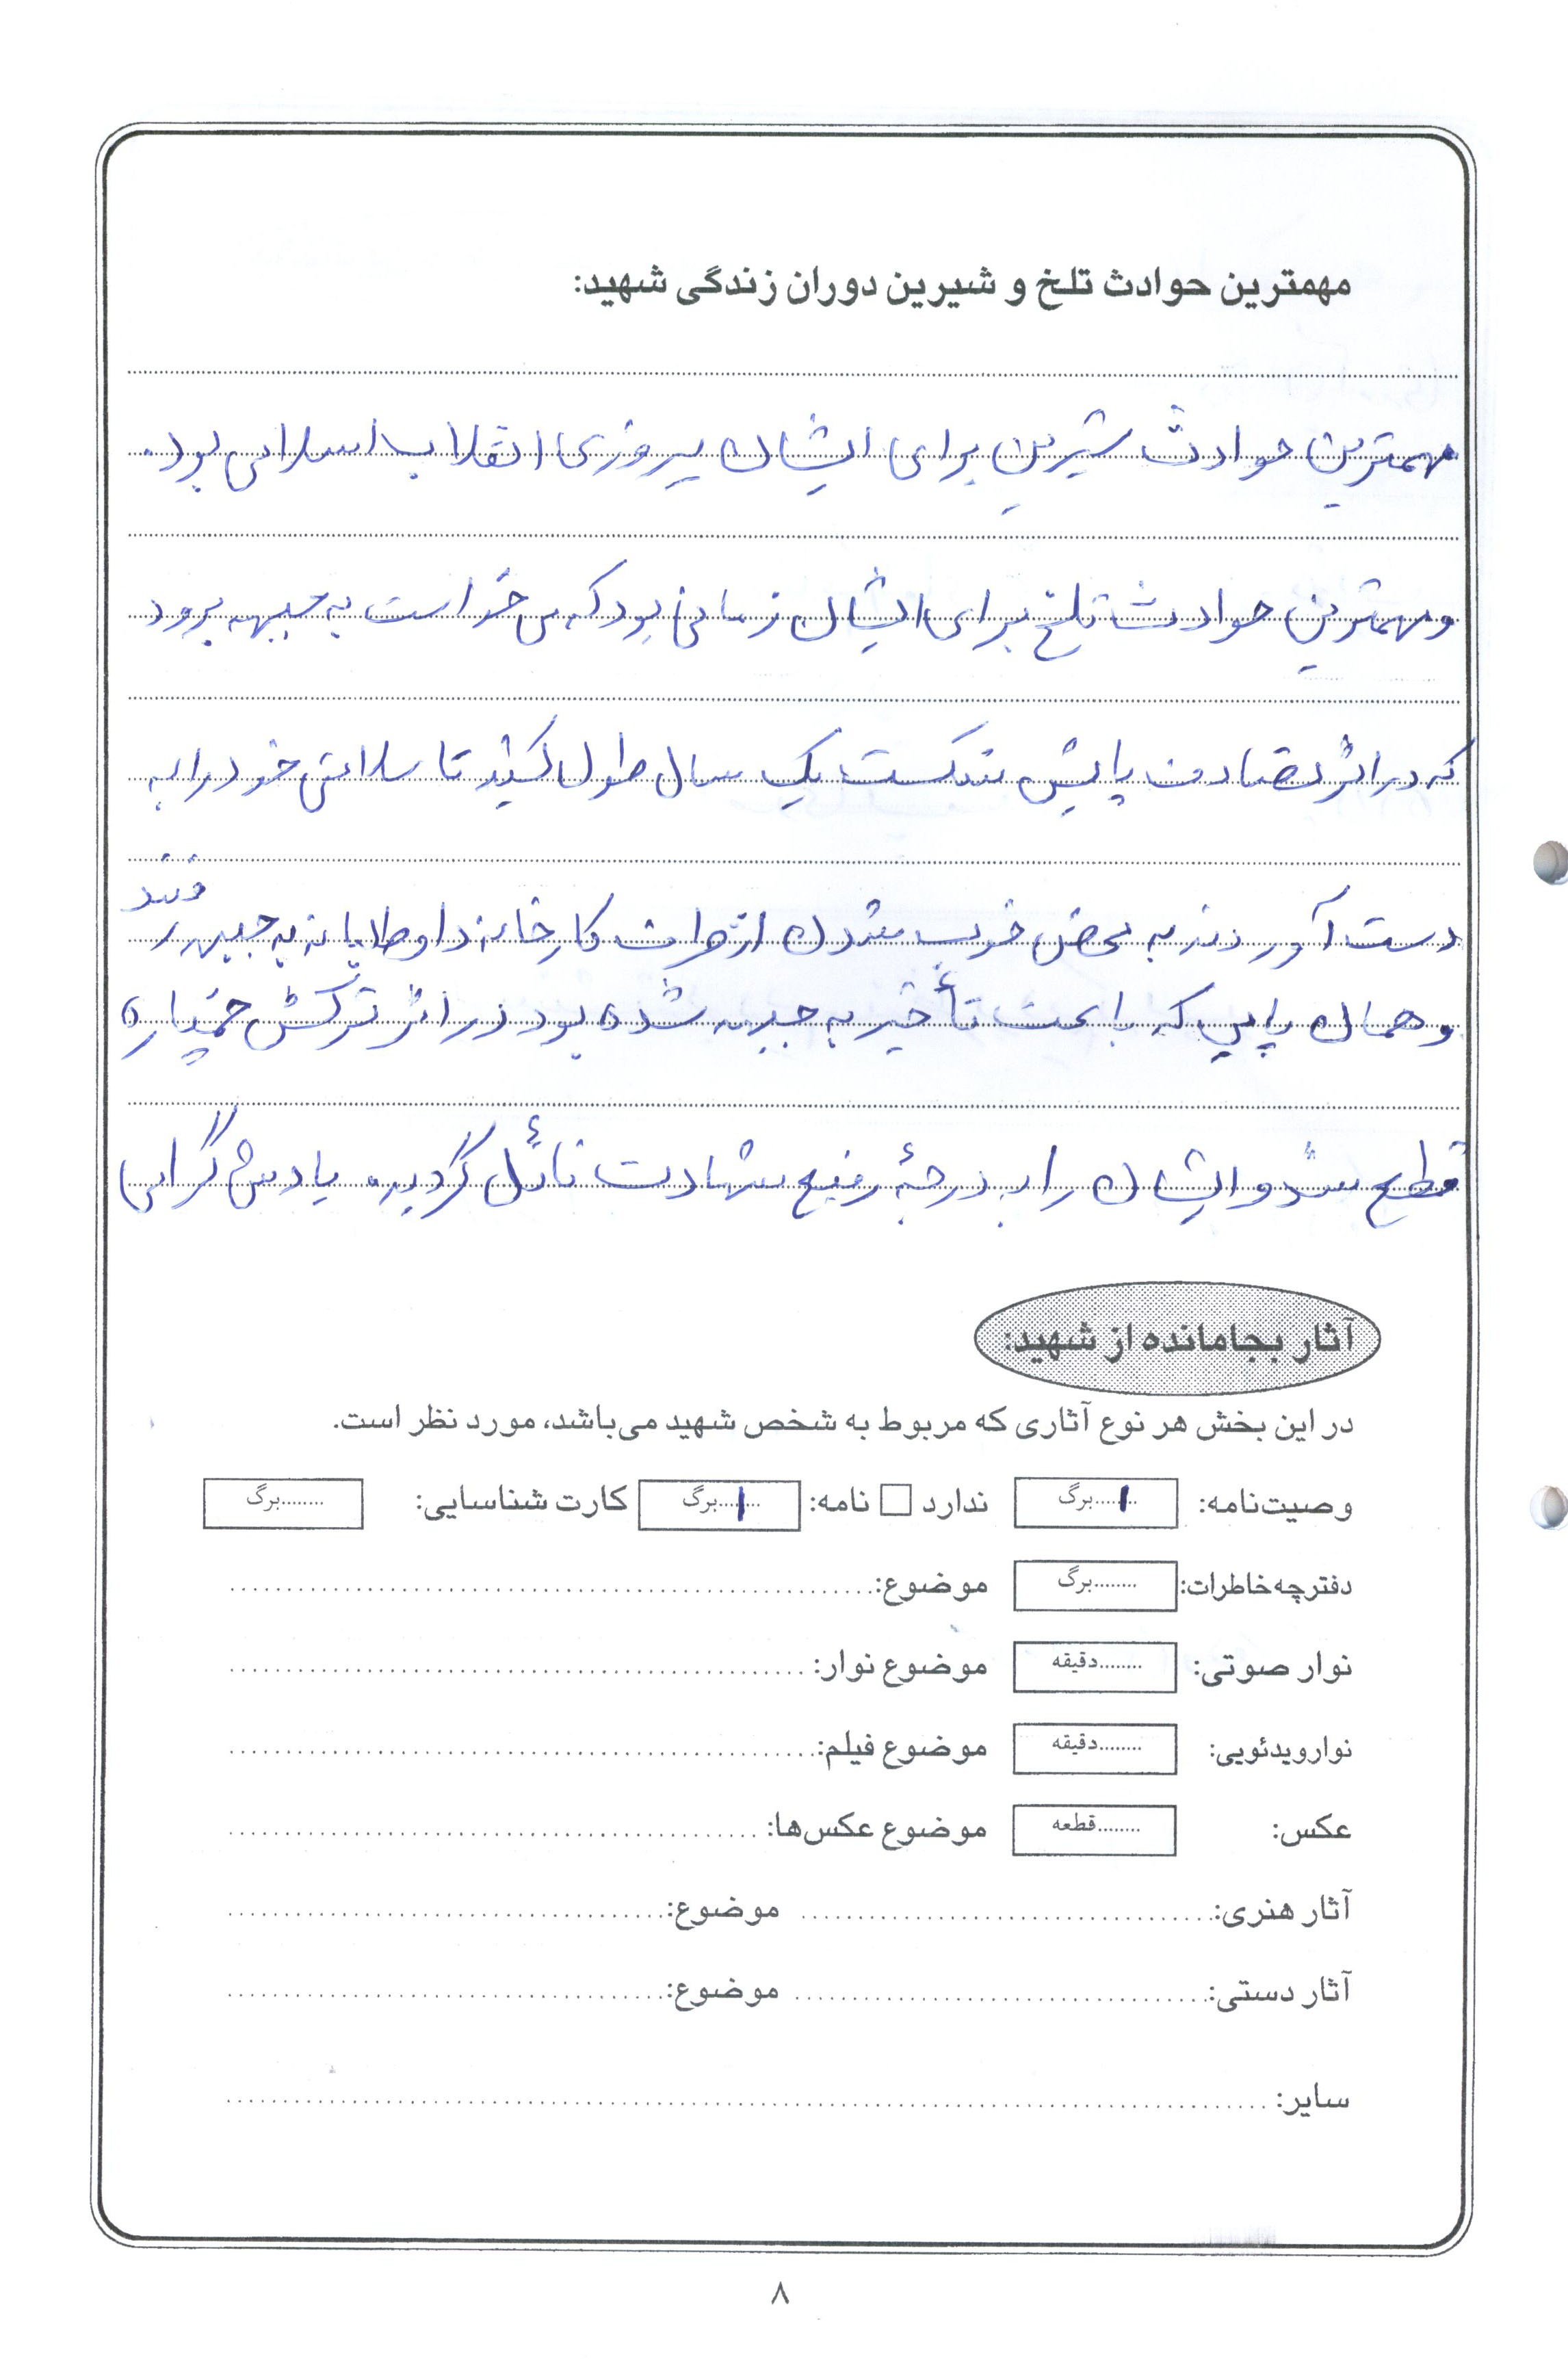 مهمترین حوادث تلخ و شیرین دوران زندگی شهید:
مهمترین حوادث شیرین برای ایشان پیروزی انقلاب اسلامی بود.
و مهمترین حوادث تلخ برای ایشان زمانی بود که می خواست به جبهه برود
که در اثر تصادف پایش شکست یک سال طول کشید تا سلامتی خود را به
دست آوردند به محض خوب شدن از طرف کارخانه داوطلبانه به جبهه رفتند
و همان پایی که باعث تأخیر به جبهه شده بود در اثر ترکش خمپاره
قطع شد و ایشان را به درجهٔ رفیع شهادت نائل گردید. یادش گرامی
آثار بجامانده از شهید:
در این بخش هر نوع آثاری که مربوط به شخص شهید می‌باشد، مورد نظر است.
وصیت‌نامه: ۱ برگ ندارد □ نامه: ۱ برگ کارت شناسایی: ........برگ
دفترچه خاطرات: ........برگ موضوع:
نوار صوتی: ........دقیقه موضوع نوار:
نوار ویدئویی: ........دقیقه موضوع فیلم:
عکس: ........قطعه موضوع عکس‌ها:
آثار هنری: موضوع:
آثار دستی: موضوع:
سایر:
۸